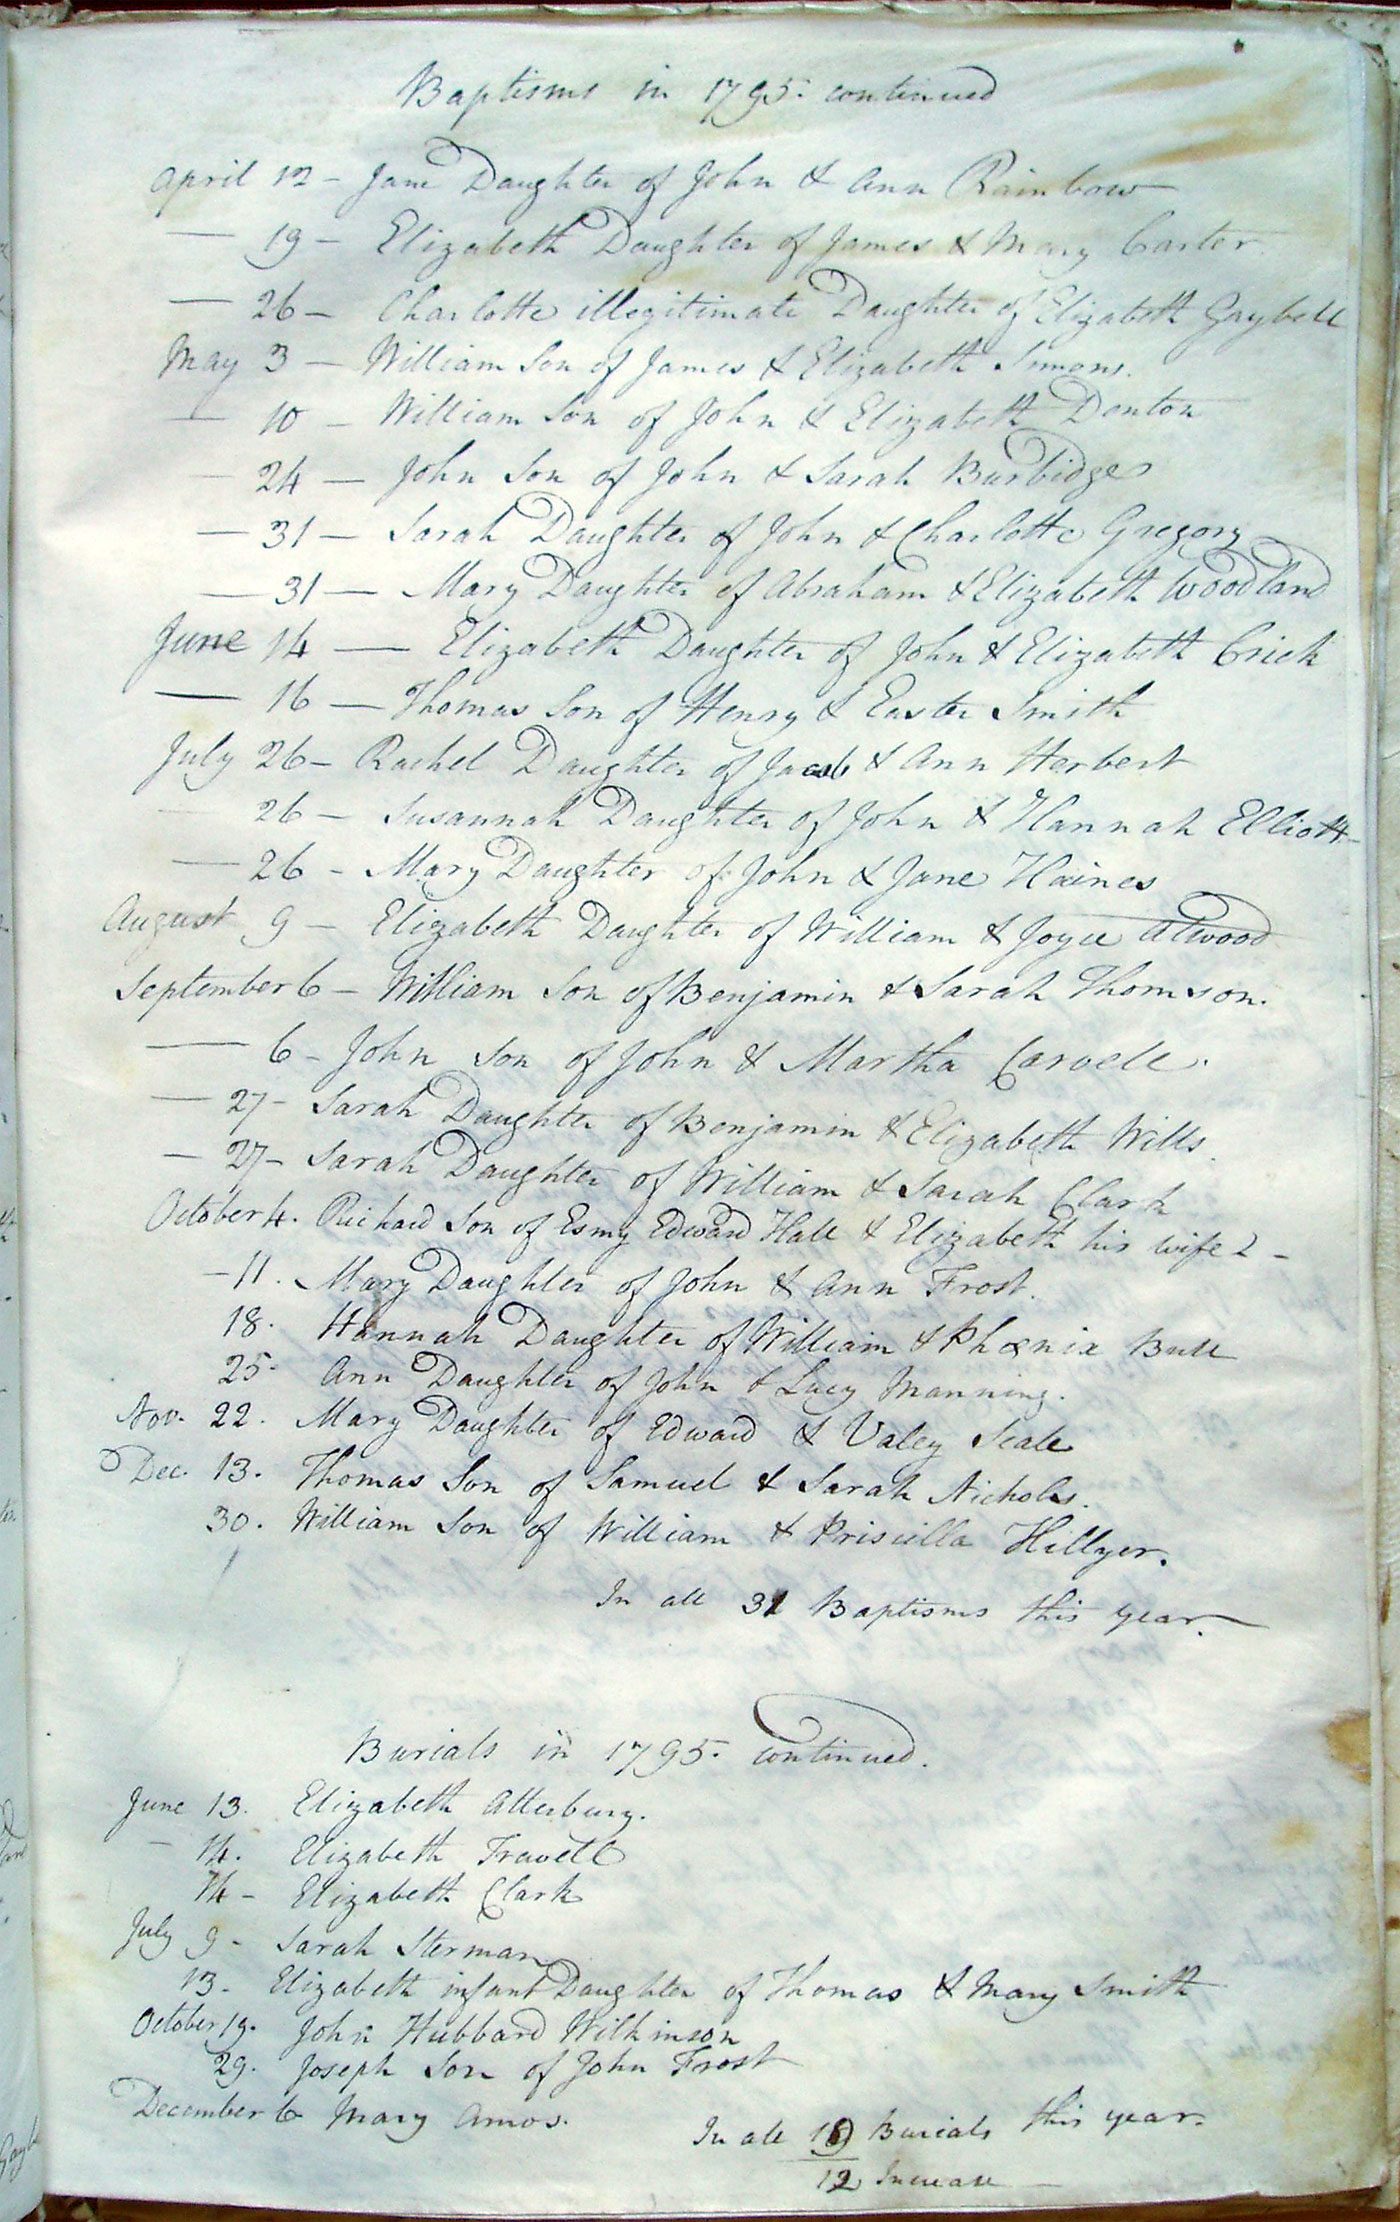 Baptisms in 1795. continued
April 12 - Jane Daughter of John & Ann Rainbow
— 19 - Elizabeth Daughter of James & Mary Carter.
— 26 - Charlotte illegitimate Daughter of Elizabeth Gaybell
May 3 - William Son of James & Elizabeth Simons.
— 10 - William Son of John & Elizabeth Denton
— 24 - John Son of John & Sarah Burbidge
— 31 - Sarah Daughter of John & Charlotte Gregory
— 31 - Mary Daughter of Abraham & Elizabeth Woodland
June 14 - Elizabeth Daughter of John & Elizabeth Crick
— 16 - Thomas Son of Henry & Easter Smith
July 26 - Rachel Daughter of Jacob & Ann Herbert
— 26 - Susannah Daughter of John & Hannah Elliott
— 26 - Mary Daughter of John & Jane Haines
August 9 - Elizabeth Daughter of William & Joyce Atwood
September 6 - William Son of Benjamin & Sarah Thomson.
— 6 - John Son of John & Martha Carvell.
— 27 - Sarah Daughter of Benjamin & Elizabeth Wills.
— 27 - Sarah Daughter of William & Sarah Clark
October 4. Richard Son of Esmy Edward Hall & Elizabeth his wife -
- 11. Mary Daughter of John & Ann Frost.
18. Hannah Daughter of William & Phœnix Bull
25. Ann Daughter of John & Lucy Manning.
Nov. 22. Mary Daughter of Edward & Valey Seale
Dec. 13. Thomas Son of Samuel & Sarah Nichols.
30. William Son of William & Priscilla Hillyer.
In all 31 Baptisms this year.
Burials in 1795. continued.
June 13. Elizabeth Atterbury.
— 14. Elizabeth Fravell
14 - Elizabeth Clark
July 9 - Sarah Sterman
13 - Elizabeth infant Daughter of Thomas & Mary Smith
October 19. John Hubbard Wilkinson
29. Joseph Son of John Frost
December 6 Mary Amos.
In all Burials this year.
12 Increase